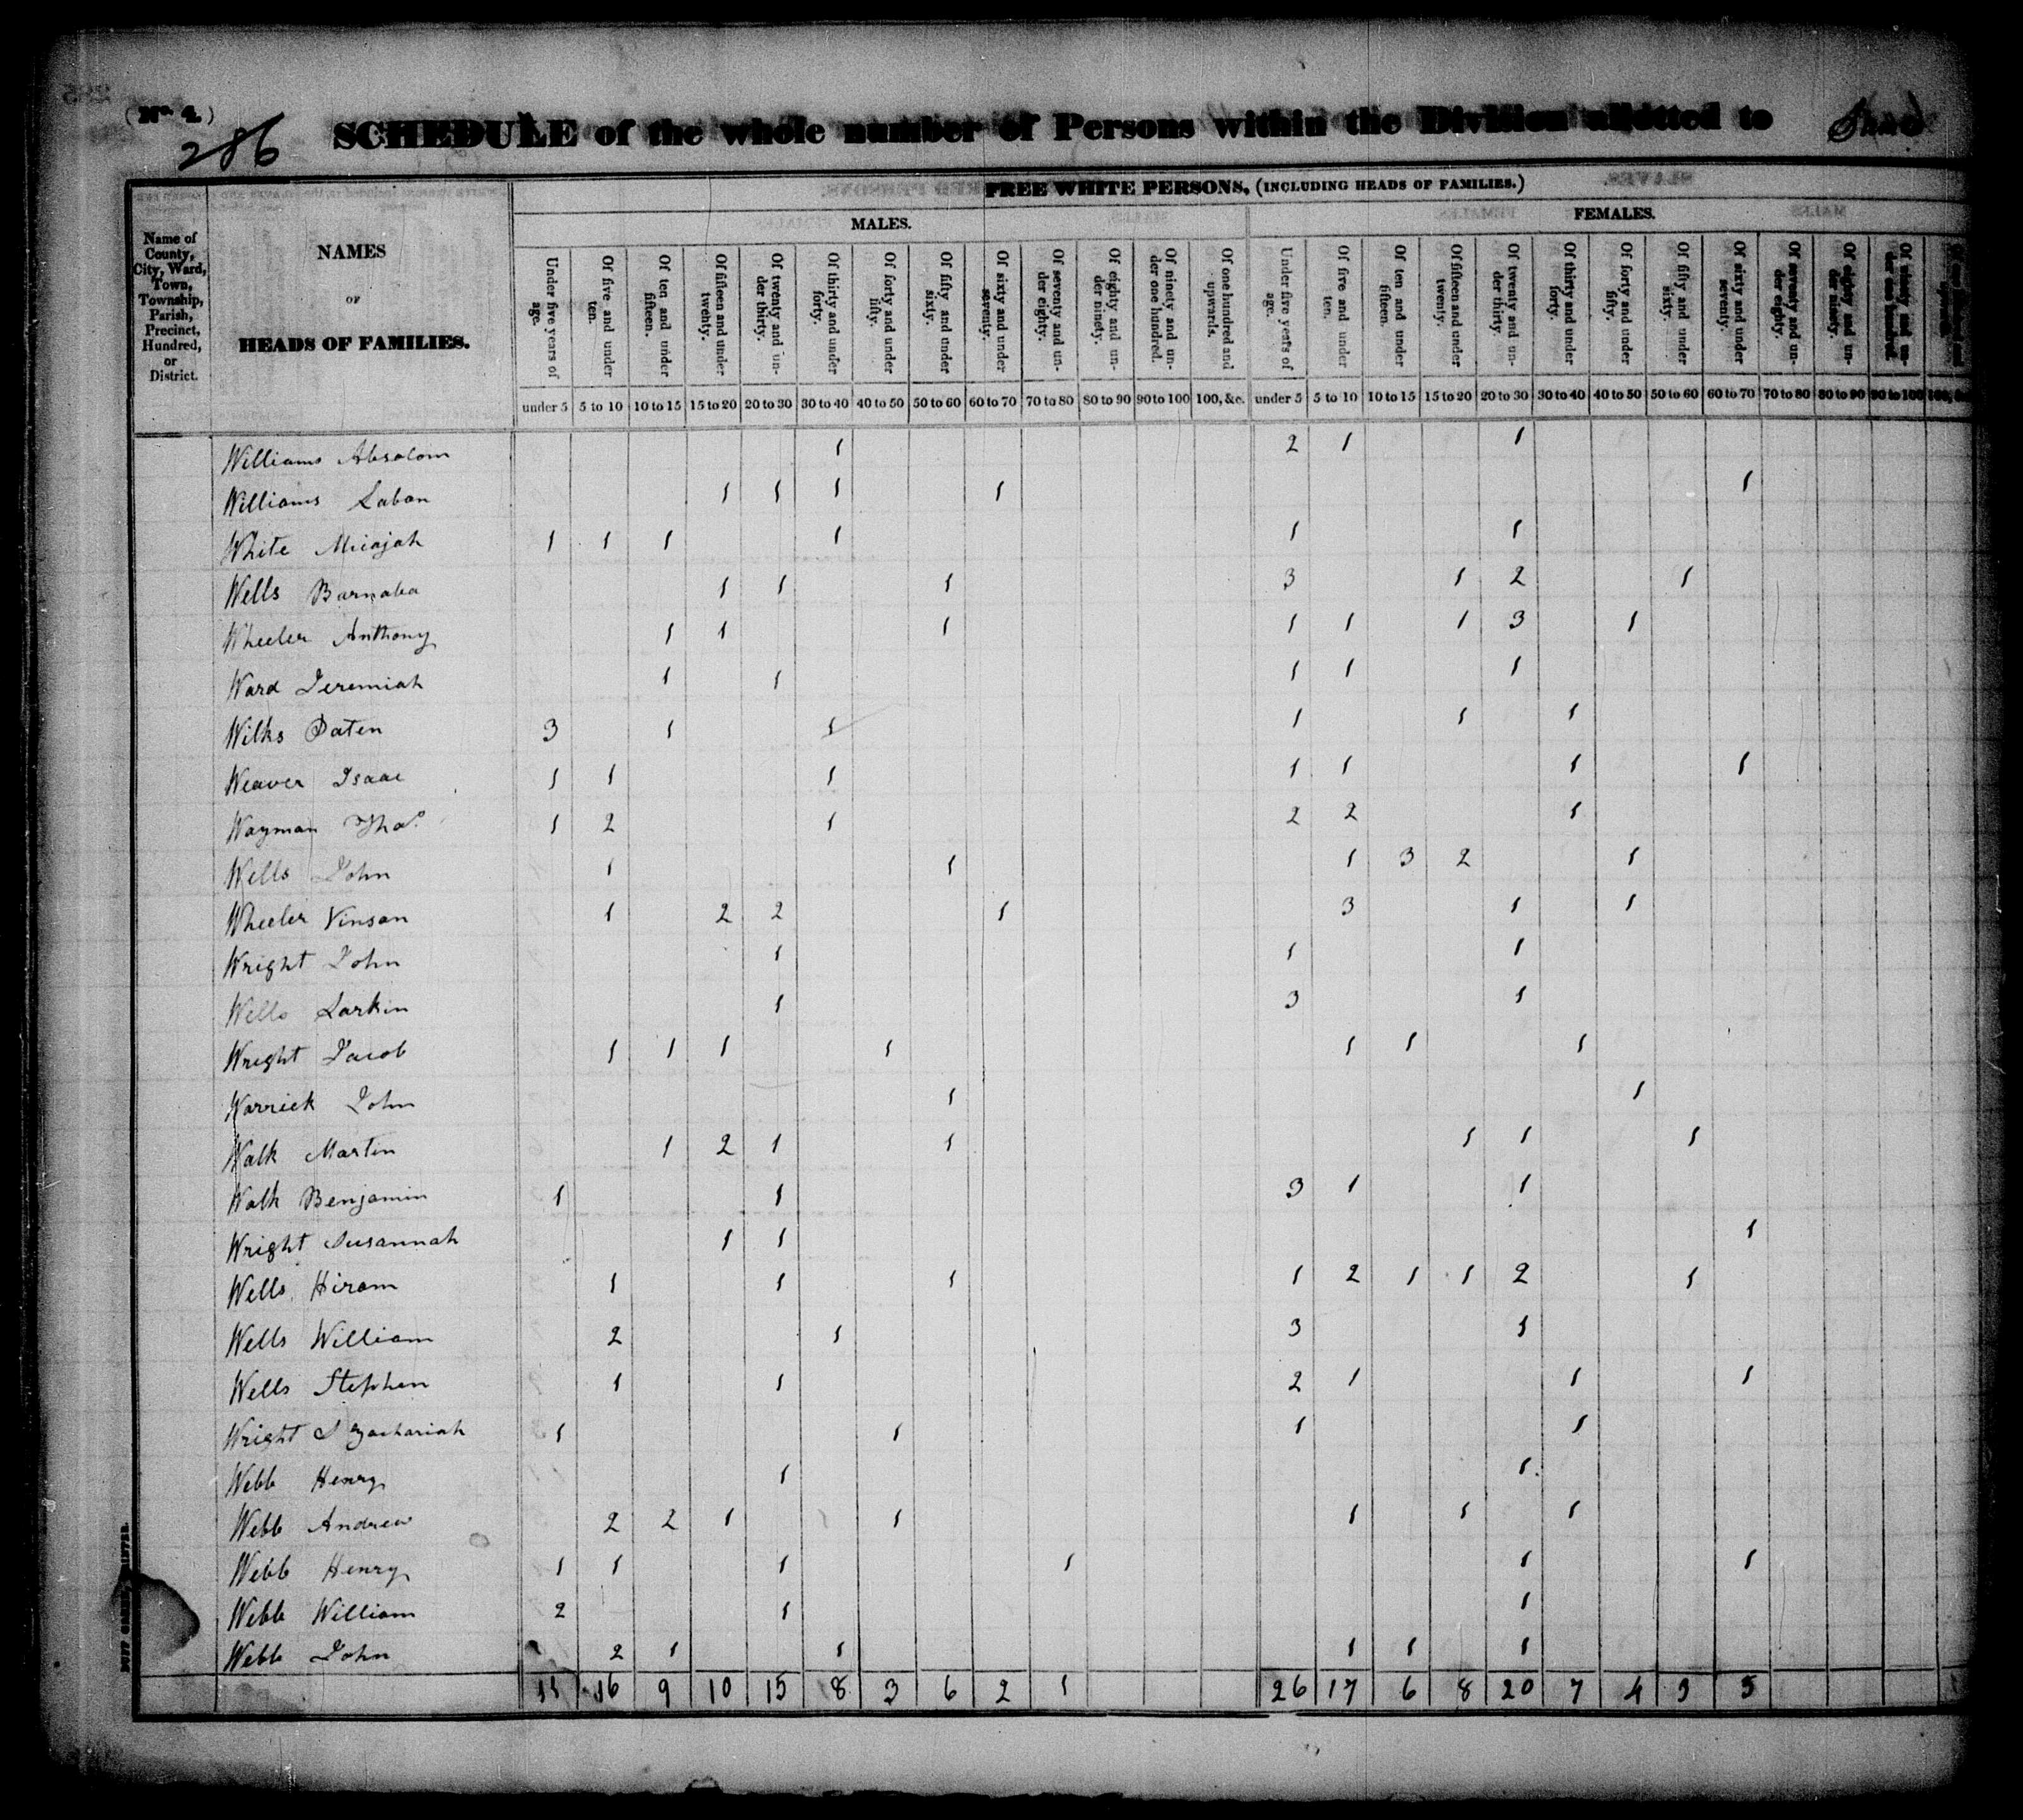 (No. 4.)
286
SCHEDULE of the whole number of Persons within the Division allotted to
FREE WHITE PERSONS, (INCLUDING HEADS OF FAMILIES.)
MALES. FEMALES.
Name of County, City, Ward, Town, Township, Parish, Precinct, Hundred, or District.
NAMES OF HEADS OF FAMILIES.
Under five years of age. Of five and under ten. Of ten and under fifteen. Of fifteen and under twenty. Of twenty and under thirty. Of thirty and under forty. Of forty and under fifty. Of fifty and under sixty. Of sixty and under seventy. Of seventy and under eighty. Of eighty and under ninety. Of ninety and under one hundred. Of one hundred and upwards. Under five years of age. Of five and under ten. Of ten and under fifteen. Of fifteen and under twenty. Of twenty and under thirty. Of thirty and under forty. Of forty and under fifty. Of fifty and under sixty. Of sixty and under seventy. Of seventy and under eighty. Of eighty and under ninety. Of ninety and under one hundred.
under 5 5 to 10 10 to 15 15 to 20 20 to 30 30 to 40 40 to 50 50 to 60 60 to 70 70 to 80 80 to 90 90 to 100 100, &c. under 5 5 to 10 10 to 15 15 to 20 20 to 30 30 to 40 40 to 50 50 to 60 60 to 70 70 to 80 80 to 90 90 to 100 100, &c.
Williams Absalom 1 2 1 1
Williams Laban 1 1 1 1 1
White Micajah 1 1 1 1 1 1
Wells Barnaba 1 1 1 3 1 2 1
Wheeler Anthony 1 1 1 1 1 1 3 1
Ward Jeremiah 1 1 1 1 1
Wilks Paten 3 1 1 1 1 1
Weaver Isaac 1 1 1 1 1 1 1
Wayman Thos. 1 2 1 2 2 1
Wells John 1 1 1 3 2 1
Wheeler Vinson 1 2 2 1 3 1 1
Wright John 1 1 1
Wells Larkin 1 3 1
Wright Jacob 1 1 1 1 1 1 1
Warrick John 1 1
Walk Martin 1 2 1 1 1 1 1
Walk Benjamin 1 1 3 1 1
Wright Susannah 1 1 1
Wells Hiram 1 1 1 1 2 1 1 2 1
Wells William 2 1 3 1
Wells Stephen 1 1 2 1 1 1
Wright S Zachariah 1 1 1 1
Webb Henry 1 1
Webb Andrew 2 2 1 1 1 1 1
Webb Henry 1 1 1 1 1 1
Webb William 2 1 1
Webb John 2 1 1 1 1 1
11 16 9 10 15 8 3 6 2 1 26 17 6 8 20 7 4 3 5